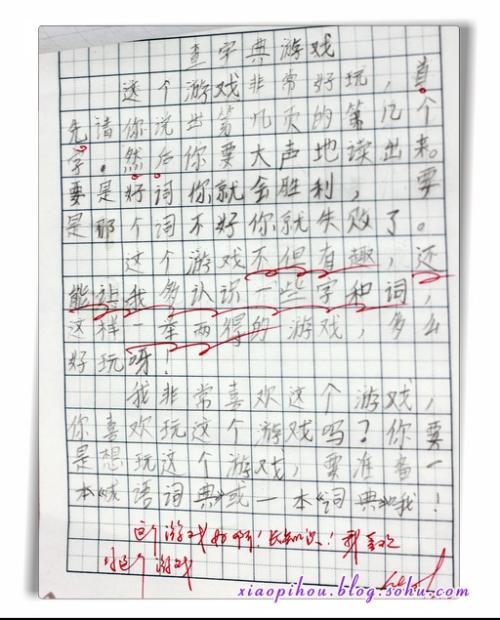 查字典游戏
这个游戏非常好玩，首
先请你说出第几页的第几个
字。然后你要大声地读出来。
要是好词你就会胜利，要
是那个词不好你就失败了。
这个游戏不但有趣，还
能让我多认识一些字和词，
这样一举两得的游戏，多么
好玩呀！
我非常喜欢这个游戏，
你喜欢玩这个游戏吗？你要
是想玩这个游戏，要准备一
本《成语词典》或一本《词典》哦！
这个游戏好啊！长知识！我喜欢
这个游戏
xiaopihou.blog.sohu.com